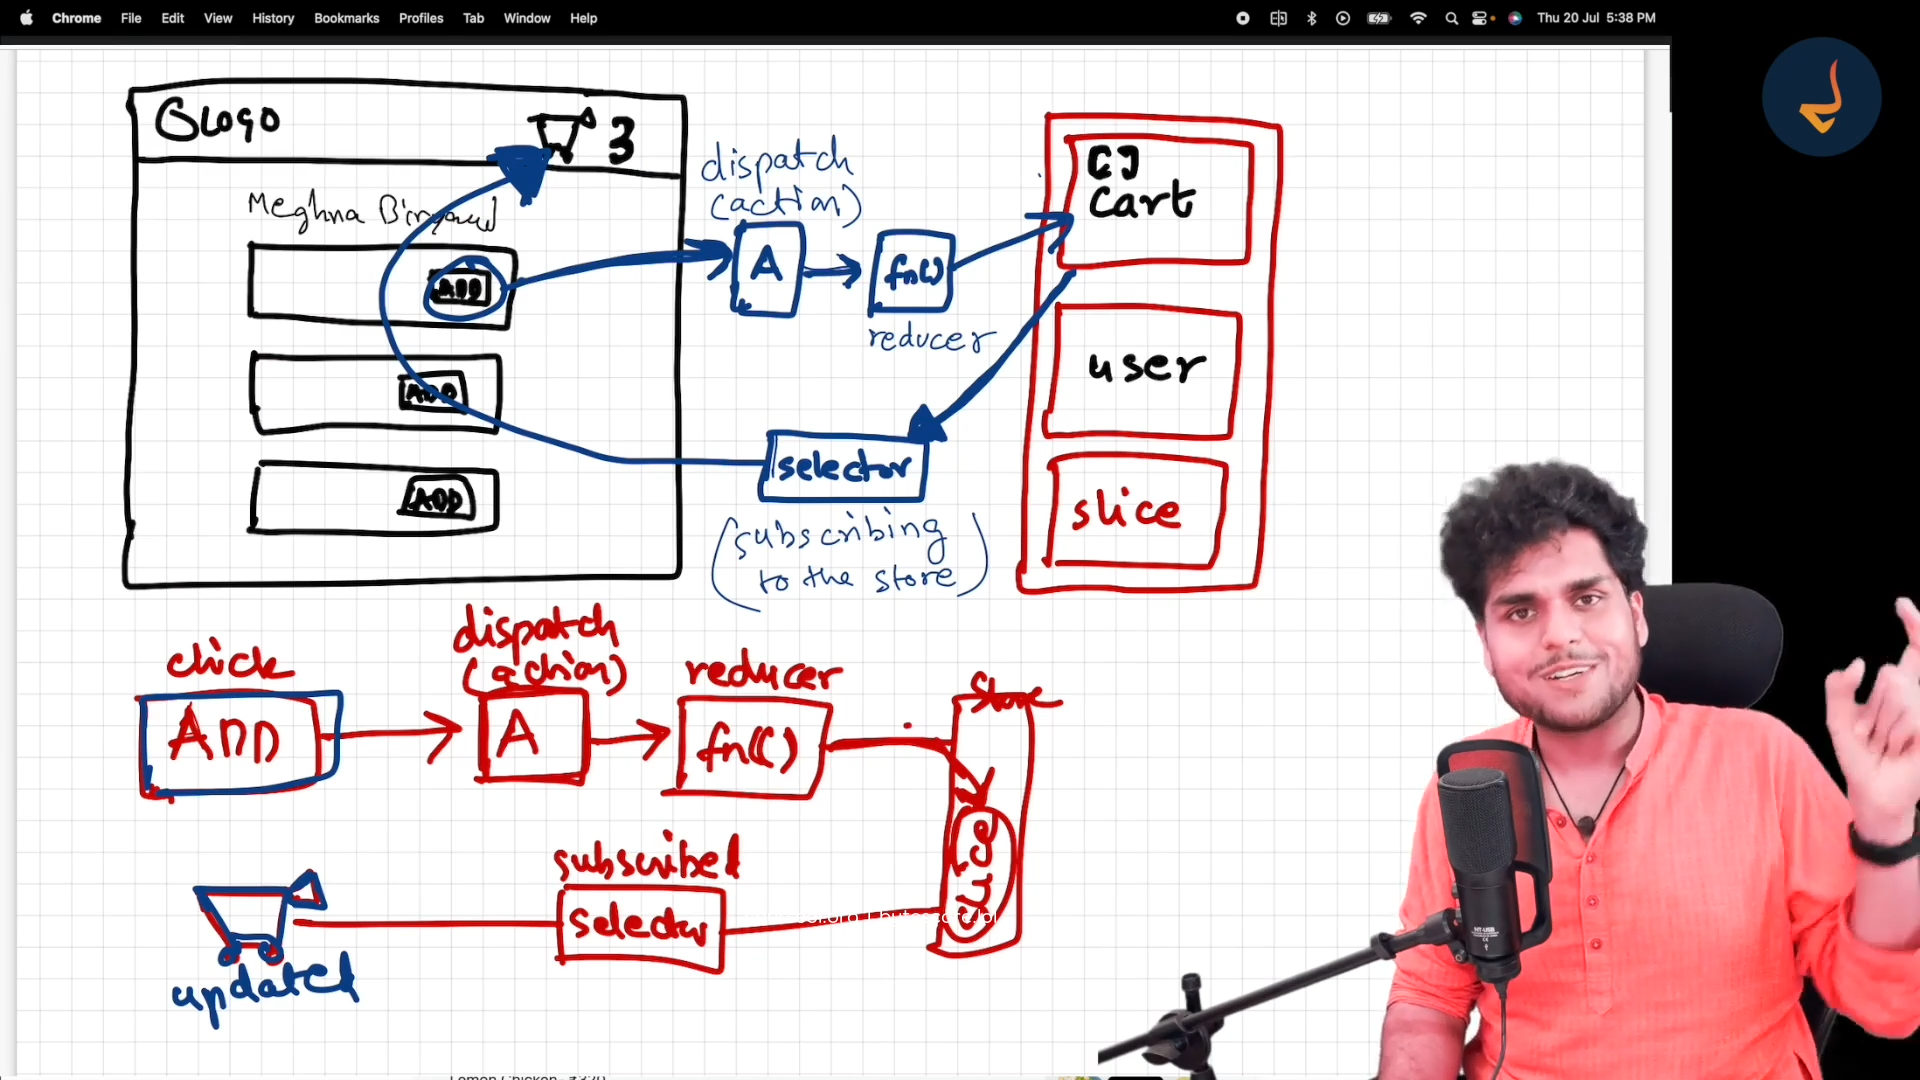 Chrome File Edit View History Bookmarks Profiles Tab Window Help
Thu 20 Jul 5:38 PM
Logo
3
Meghna
ADD
ADD
ADD
dispatch
(action)
A
fn()
reducer
selector
(subscribing
to the store)
[]
Cart
user
slice
click
ADD
dispatch
(action)
A
reducer
fn()
Store
slice
subscribed
selector
updated